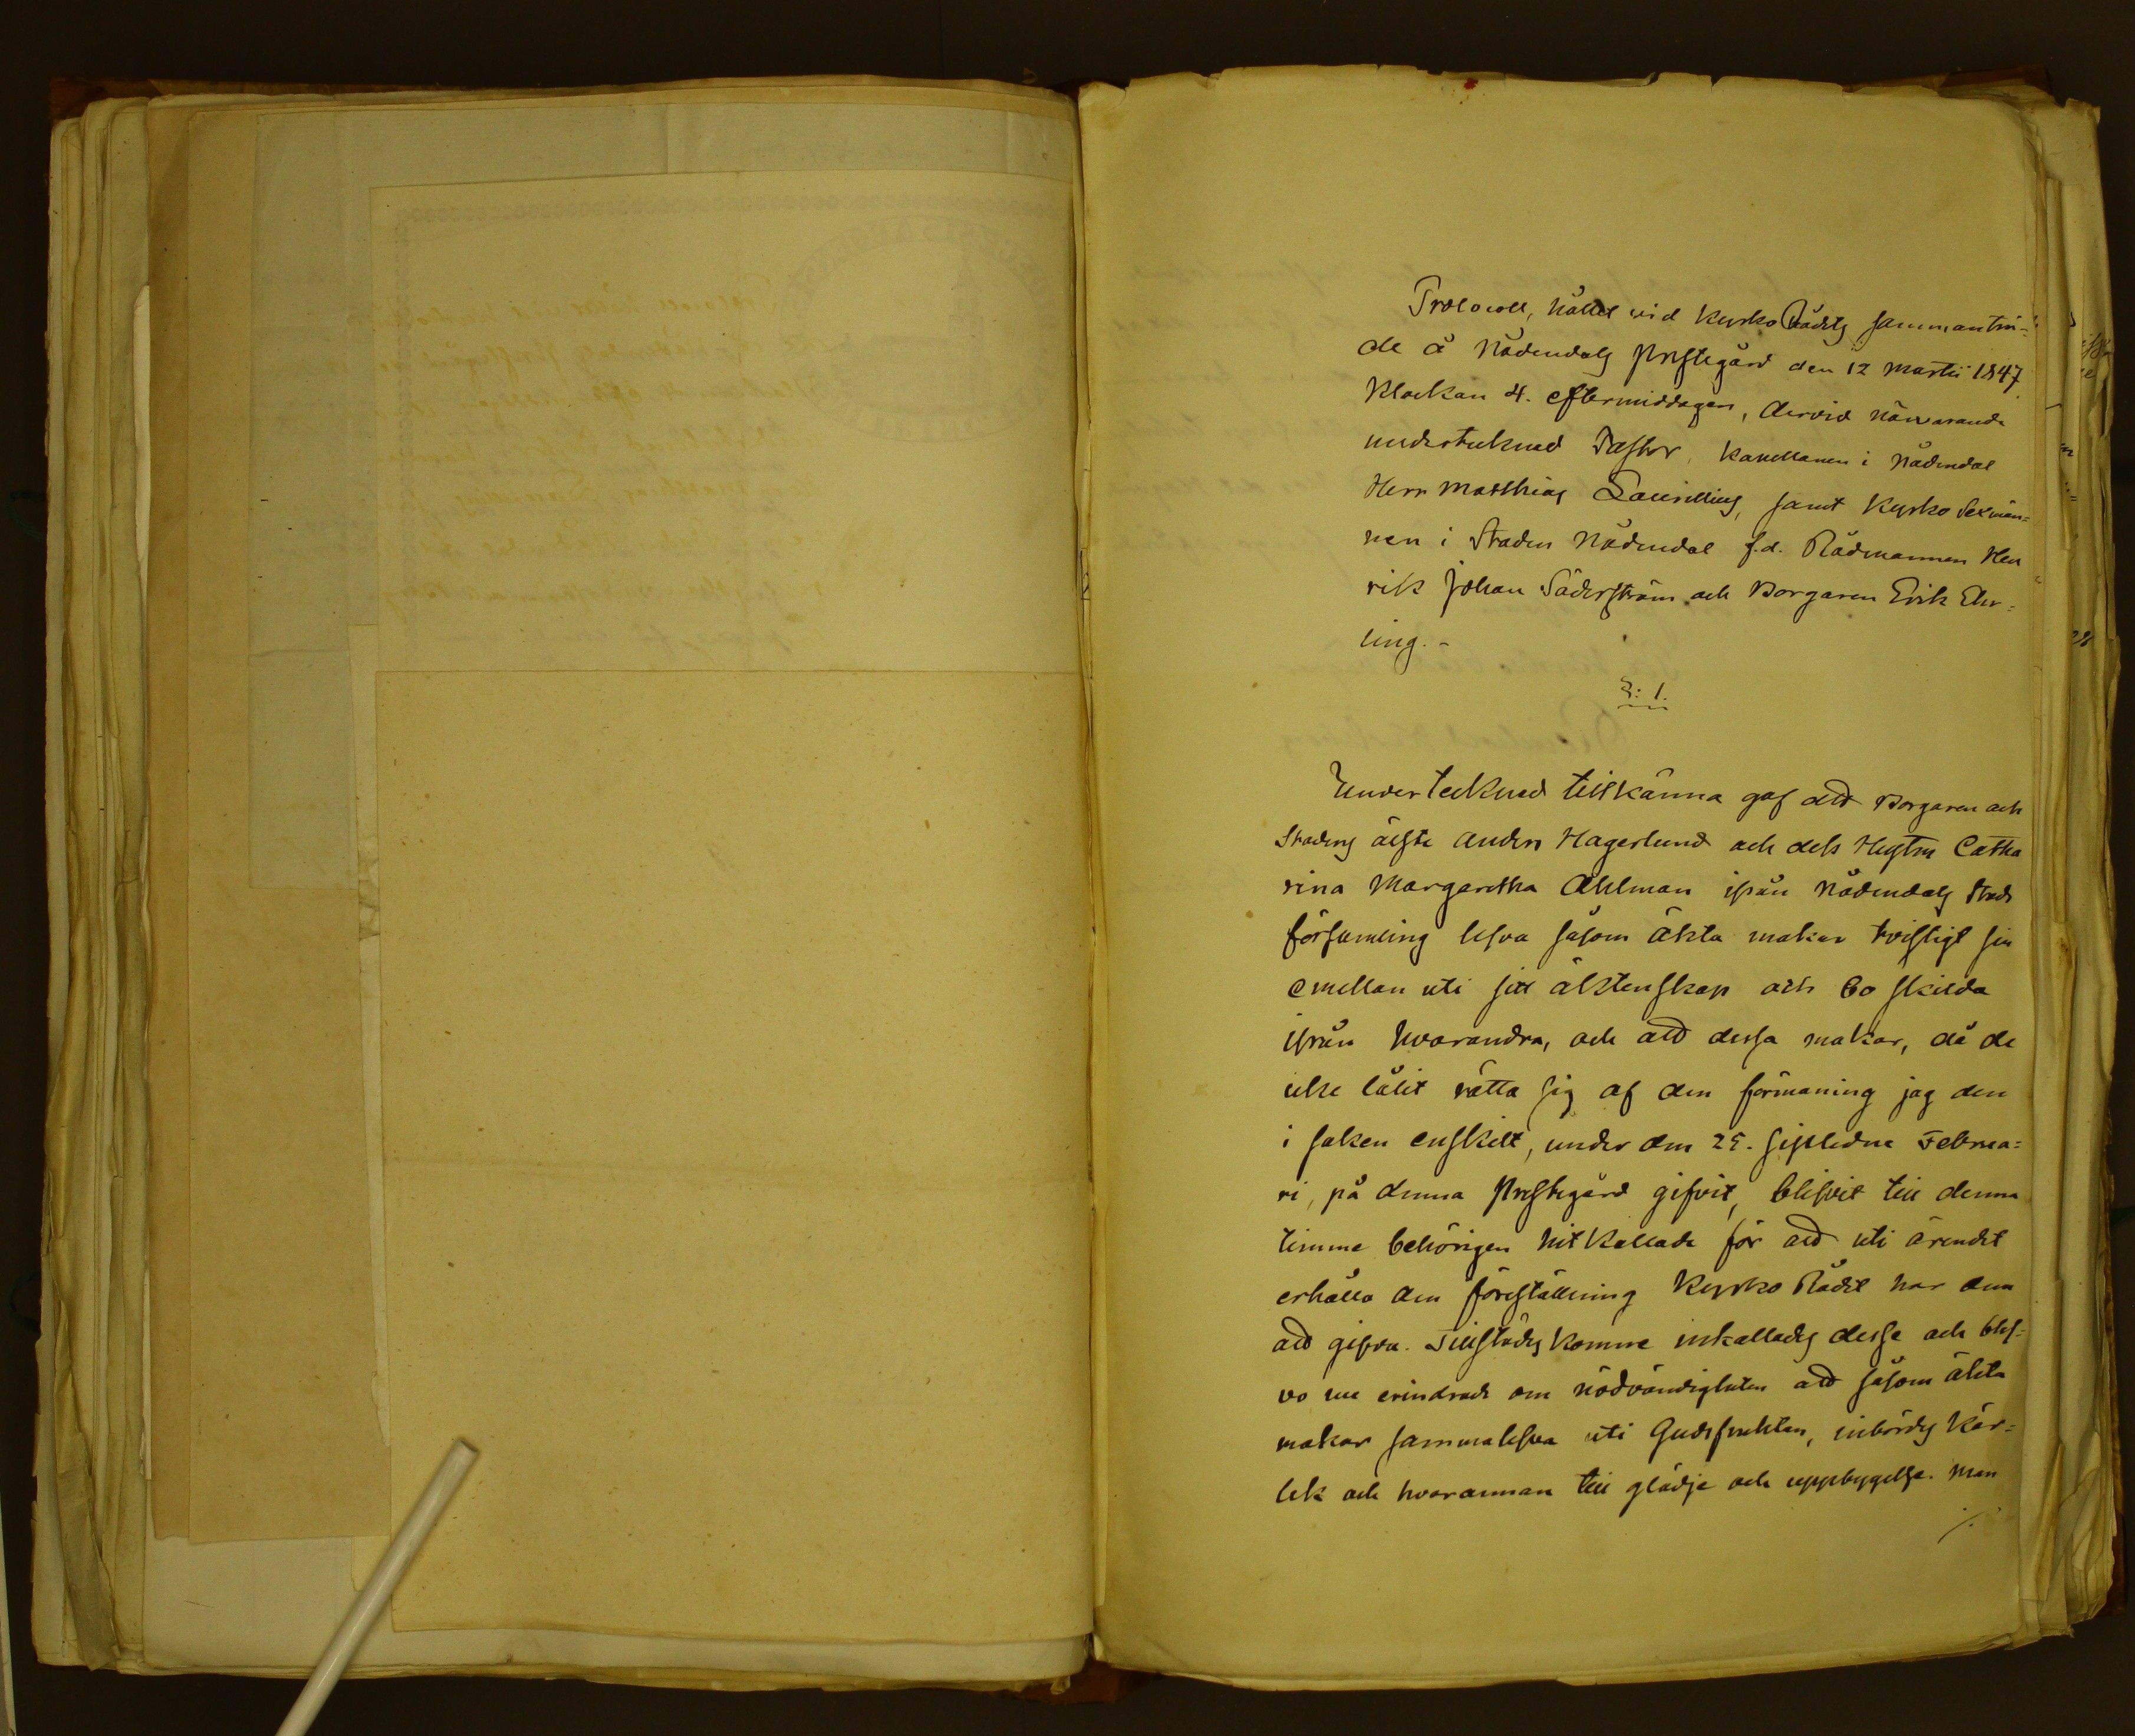 Protocoll, hållet vid Kyrko Rådets sammanträ=
de å Nådendals Prestegård den 12 Martii 1847
Klockan 4. eftermiddagen, dervid närvarande
undertecknad Pastor, Kapellanen i Nådendal
Herr Matthias Laurellius, samt Kyrko Sexmän=
nen i Staden Nådendal f.d. Rådmannen Hen
rik Johan Söderström och Borgaren Erik Ehr=
ling. -
§: 1.
Undertecknad tillkänna gaf att Borgaren och
Stadens älste Anders Hagerlund och dess Hustru Catha
rina Margaretha Ahlman ifrån Nådendals Stads
församling lefva såsom äkta makar tvistigt sin
emellan uti sitt äktenskap och bo skilda
ifrån hvarandra, och att dessa makar, då de
icke låtit rätta sig af den förmaning jag dem
i saken enskilt, under den 25. sistledne Februa=
ri, på denna Prestegård gifvit, blifvit till denna
timme behörigen hitkallade för att uti ärendet
erhålla den föreställning Kyrko Rådet har dem
att gifva. Tillstädes komne inkallades desse och blef=
vo nu erindrade om nödvändigheten att såsom äkta
makar sammanlefva uti Gudsfruktan, inbördes kär=
lek och hvarannan till glädje och uppbyggelse. Man
./.